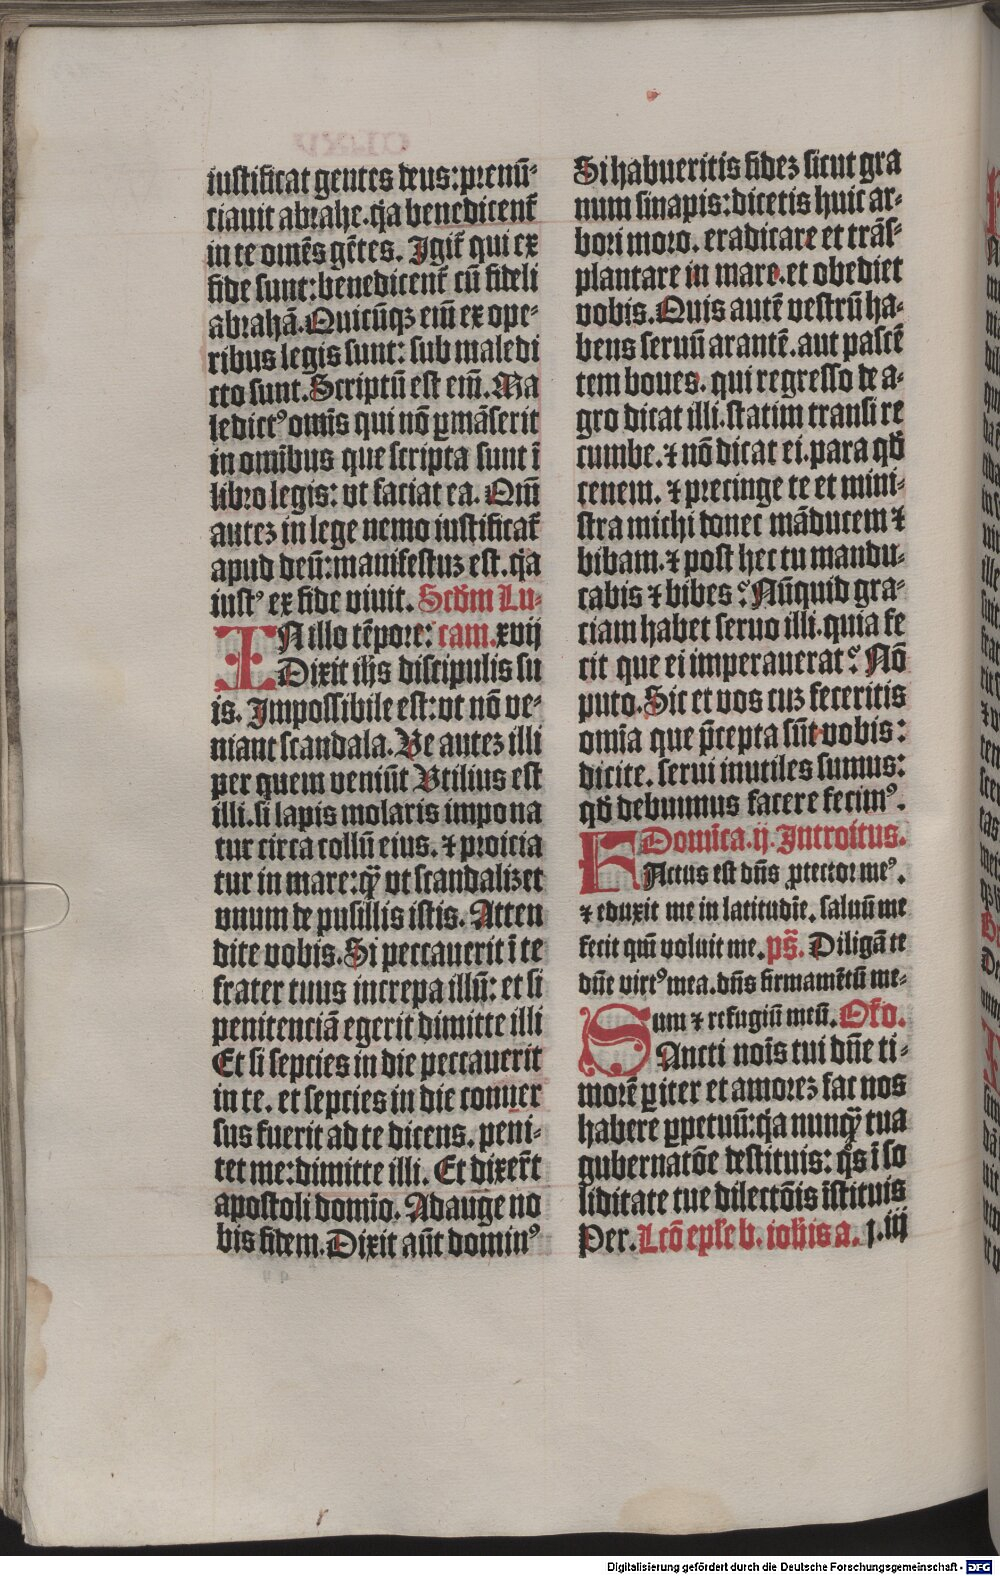 iustificat gentes deus: prenū-
ciauit abrahe. q̄a benedicent̄
in te om̄es gētes. Igit̄ qui ex
fide sunt: benedicent̄ cū fideli
abrahā. Quicūqꝫ em̄ ex ope-
ribus legis sunt: sub maledi
cto sunt. Scriptū est em̄. Ma
ledictꝰ omīs qui nō ꝑmāserit
in omībus que scripta sunt ī
libro legis: vt faciat ea. Qm̄
autez in lege nemo iustificat̄
apud deū: manifestuz est. q̄a
iustꝰ ex fide viuit. Scd̄m Lu-
IN illo tēpore: cam. xvij
Dixit ih̄s discipulis su
is. Impossibile est: vt nō ve-
niant scandala. Ve autez illi
per quem veniūt Vtilius est
illi. si lapis molaris impona
tur circa collū eius. ⁊ proicia
tur in mare: qꝫ̄ vt scandalizet
vnum de pusillis istis. Atten
dite vobis. Si peccauerit ī te
frater tuus increpa illū: et si
penitenciā egerit dimitte illi
Et si septies in die peccauerit
in te. et septies in die conuer
sus fuerit ad te dicens. peni-
tet me: dimitte illi. Et dixer̄t
apostoli domīo. Adauge no
bis fidem. Dixit aūt dominꝰ
Si habueritis fidez sicut gra
num sinapis: dicetis huic ar-
bori moro. eradicare et trās-
plantare in mare. et obediet
vobis. Quis autē vestrū ha-
bens seruū arantē. aut pascē
tem boues. qui regresso de a-
gro dicat illi. statim transi re
cumbe. ⁊ nō dicat ei. para qd̄
cenem. ⁊ precinge te et mini-
stra michi donec māducem ⁊
bibam. ⁊ post hec tu mandu-
cabis ⁊ bibes? Nūquid gra-
ciam habet seruo illi. quia fe
cit que ei imperauerat? Nō
puto. Sic et vos cuz feceritis
omīa que p̄cepta sūt vobis:
dicite. serui inutiles sumus:
qd̄ debuimus facere fecimꝰ.
Domīca. ij. Introitus.
FActus est dn̄s ꝓtector meꝰ.
⁊ eduxit me in latitudīe. saluū me
fecit qm̄ voluit me. ps̄. Diligā te
dn̄e virtꝰ mea. dn̄s firmamētū me-
um ⁊ refugiū meū. Oro.
SAncti noīs tui dn̄e ti-
morē ꝑiter et amorez fac nos
habere ꝑpetuū: q̄a nunqꝫ̄ tua
gubernatōe destituis: q̄s ī so
liditate tue dilectōis īstituis
Per. Lcō eple b. ioh̄is a. j. iij
Digitalisierung gefördert durch die Deutsche Forschungsgemeinschaft - DFG